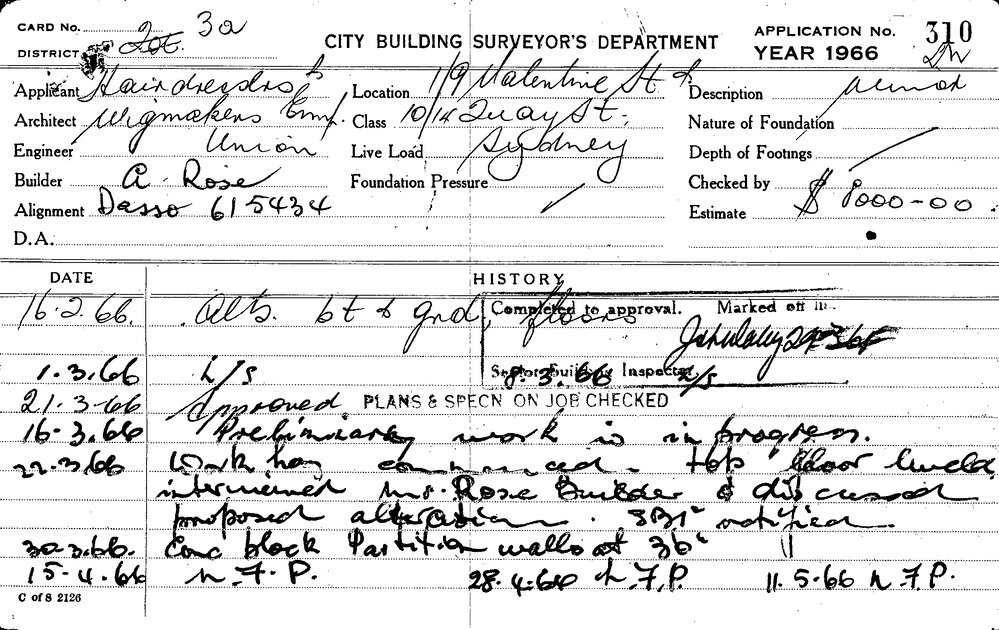 CARD No. 3a
DISTRICT Lot.
CITY BUILDING SURVEYOR'S DEPARTMENT
APPLICATION No. 310
YEAR 1966
Applicant Hairdressers &
Location 1/9 Valentine St &
Description minor
Architect Wigmakers Emp.
Class 10/14 Quay St.
Nature of Foundation
Engineer Union
Live Load Sydney
Depth of Footings
Builder A. Rose
Foundation Pressure
Checked by
Alignment Dasso 615434
Estimate $ 8000-00.
D.A.
DATE HISTORY
16.2.66. Alts. bt & grd. floors
Completed to approval. Marked off in
1.3.66 L/S
Senior Building Inspector
8.3.66 L/S
21-3-66 Approved. PLANS & SPECN ON JOB CHECKED
16-3.66 Preliminary work is in progress.
22.3.66 Work has commenced. top floor
interviewed Mr. Rose Builder & discussed
proposed alteration. notified.
30.3.66. Conc block Partition walls at 36"
15-4.66 N.F.P. 28.4.66 N.F.P. 11.5.66 N.F.P.
C of S 2126